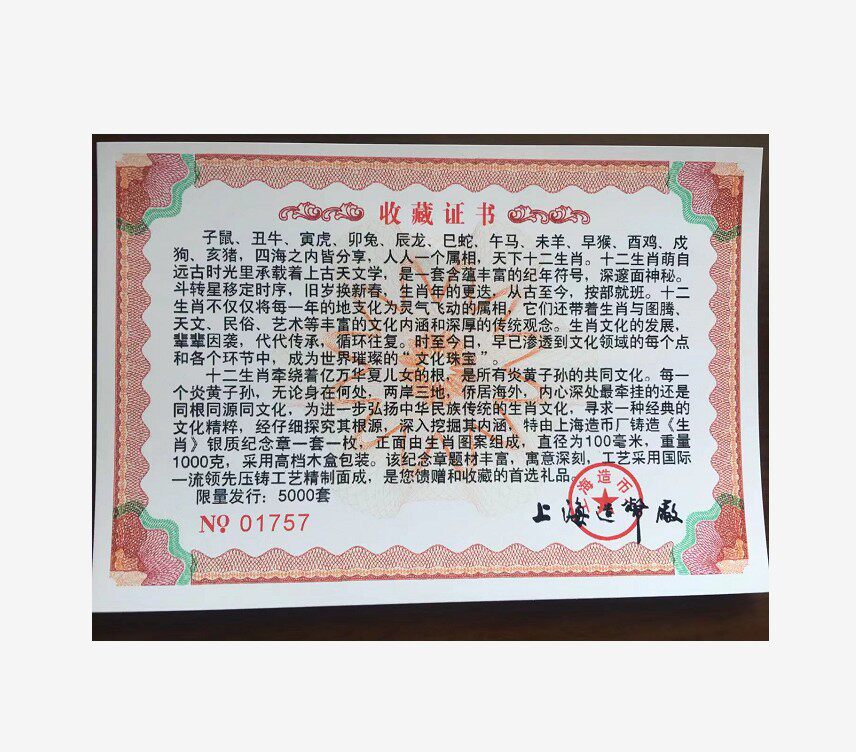 收藏证书
子鼠、丑牛、寅虎、卯兔、辰龙、巳蛇、午马、未羊、早猴、酉鸡、戍
狗、亥猪，四海之内皆分享，人人一个属相，天下十二生肖。十二生肖萌自
远古时光里承载着上古天文学，是一套含蕴丰富的纪年符号，深邃面神秘。
斗转星移定时序，旧岁换新春，生肖年的更迭，从古至今，按部就班。十二
生肖不仅仅将每一年的地支化为灵气飞动的属相，它们还带着生肖与图腾、
天文、民俗、艺术等丰富的文化内涵和深厚的传统观念。生肖文化的发展，
辈辈因袭，代代传承，循环往复。时至今日，早已渗透到文化领域的每个点
和各个环节中，成为世界璀璨的“文化珠宝”。
十二生肖牵绕着亿万华夏儿女的根，是所有炎黄子孙的共同文化。每一
个炎黄子孙，无论身在何处，两岸三地，侨居海外，内心深处最牵挂的还是
同根同源同文化，为进一步弘扬中华民族传统的生肖文化，寻求一种经典的
文化精粹，经仔细探究其根源，深入挖掘其内涵，特由上海造币厂铸造《生
肖》银质纪念章一套一枚，正面由生肖图案组成，直径为100毫米，重量
1000克，采用高档木盒包装。该纪念章题材丰富，寓意深刻，工艺采用国际
一流领先压铸工艺精制面成，是您馈赠和收藏的首选礼品。
限量发行：5000套
№ 01757
海造币
上海造幣廠